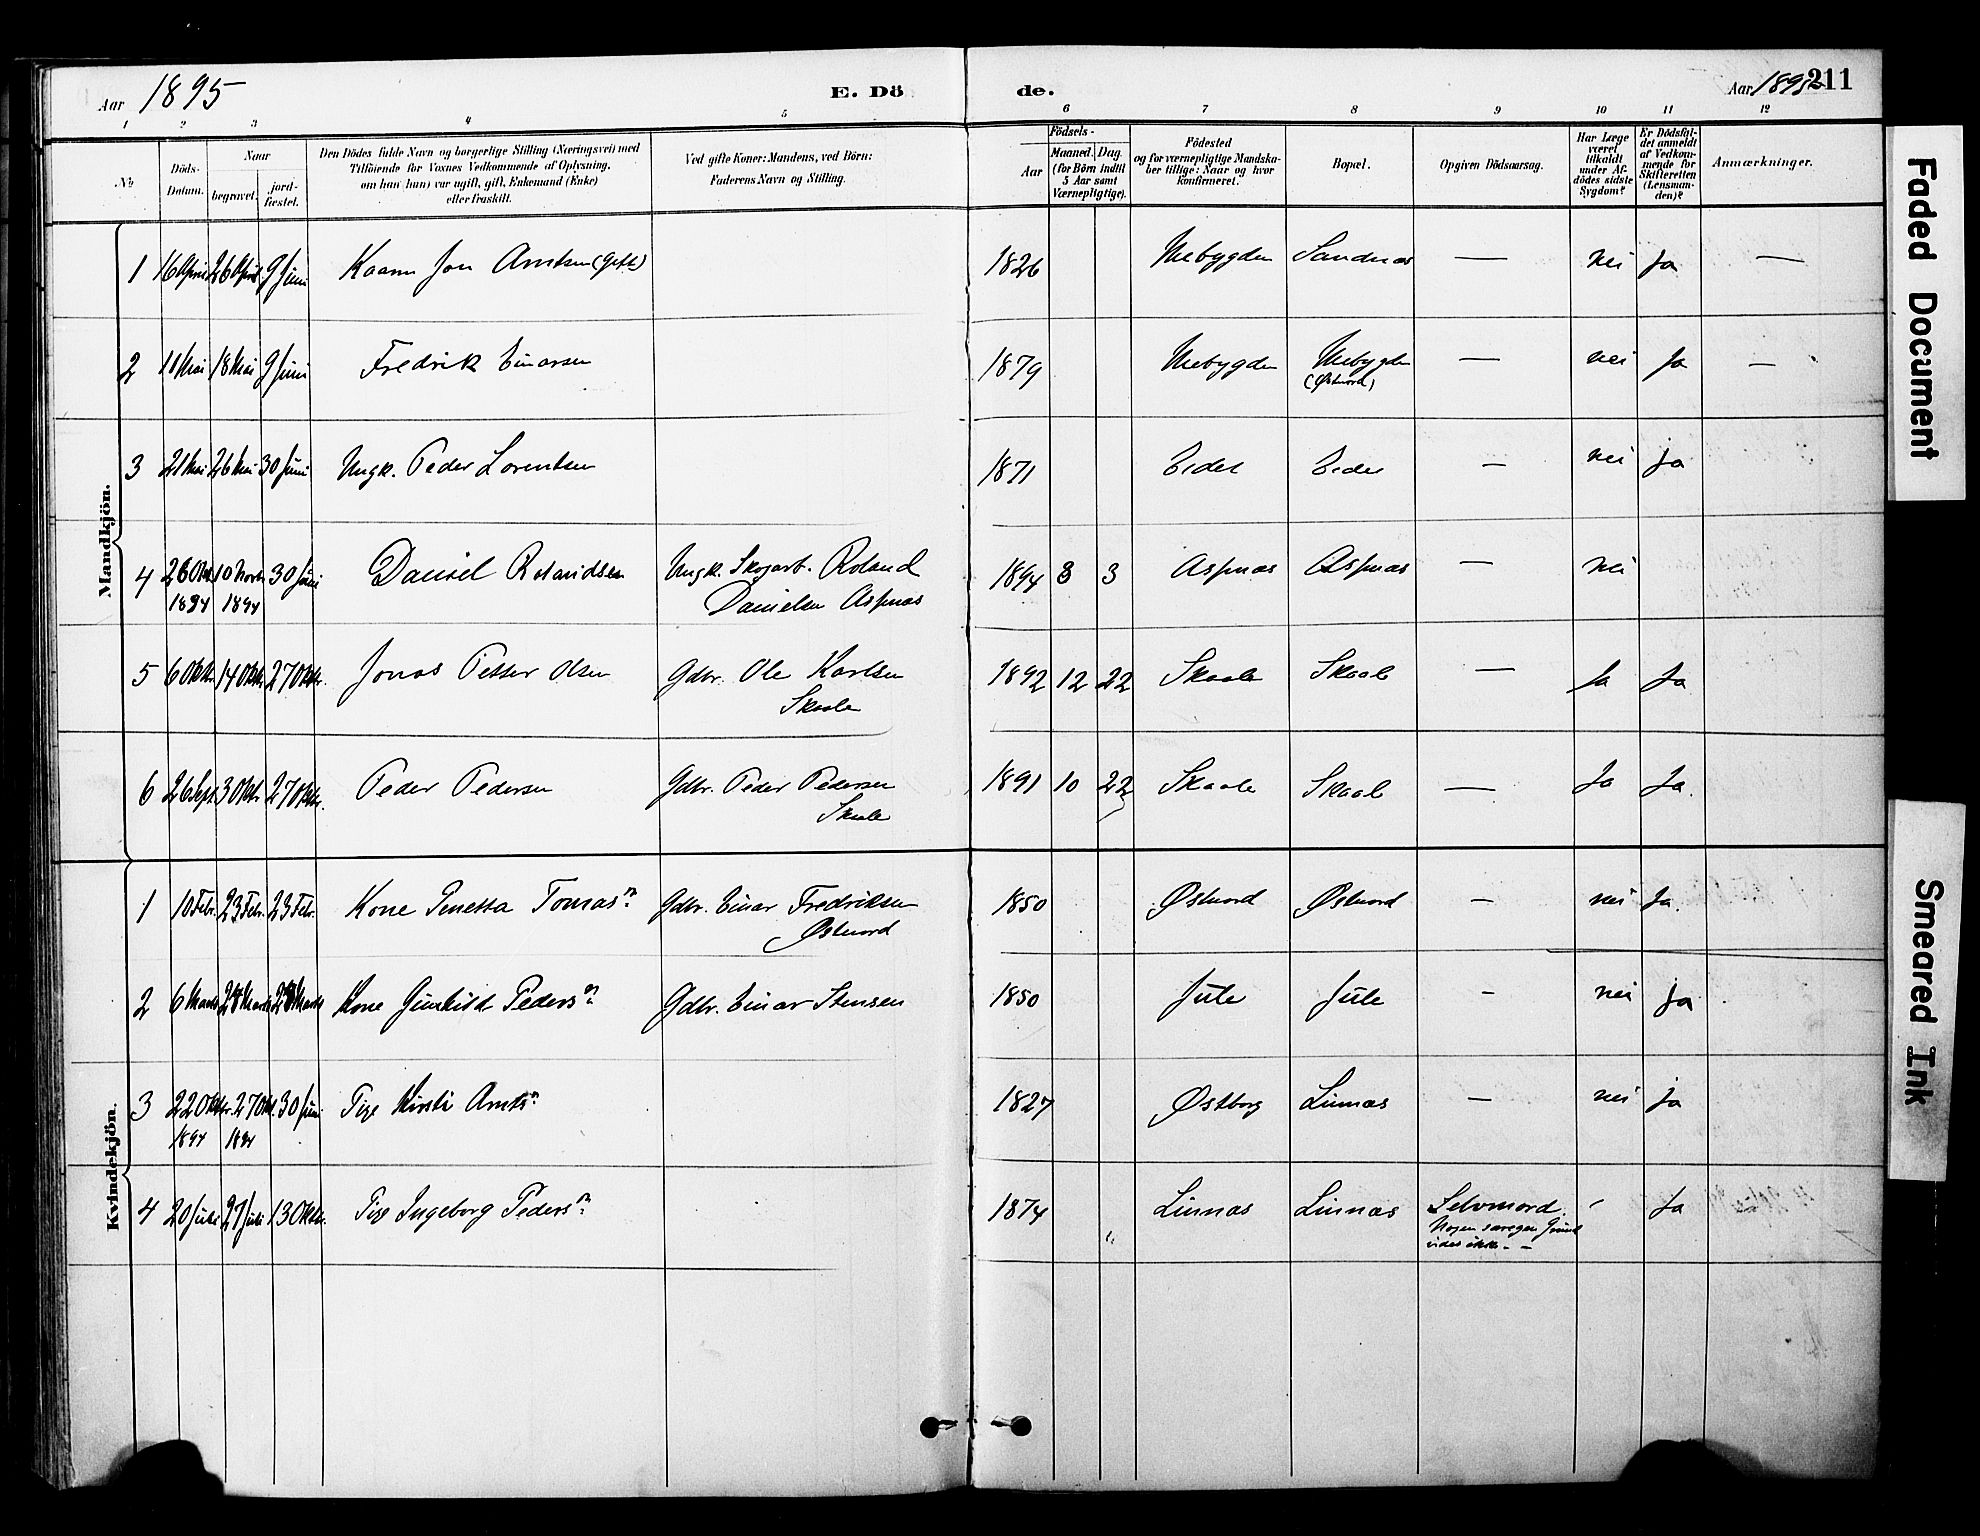 Aar 1895 E. Dö de. Aar 1895 211
1 2 3 4 5 6 7 8 9 10 11 12
№ Döds-Datum. Naar begravet. jord-fæstet. Den Dödes fulde Navn og borgerlige Stilling (Næringsvei) med Tilföiende for Voxnes Vedkommende af Oplysning, om han (hun) var ugift, gift, Enkemand (Enke) eller fraskilt. Ved gifte Koner: Mandens, ved Börn: Faderens Navn og Stilling. Födsels- Aar Maaned. Dag. (for Börn indtil 5 Aar samt Værnepligtige). Födested og for værnepligtige Mandska-ber tillige: Naar og hvor konfirmeret. Bopæl. Opgiven Dödsaarsag. Har Læge været tilkaldt under Af-dödes sidste Sygdom? Er Dödsfal-det anmeldt af Vedkom-mende for Skifteretten (Lensman-den)? Anmærkninger.
Mandkjön.
1 16 April 26 April 9 Juni Kaarm Jon Arntsen (gift) 1826 Mebygden Sandnæs — nei Ja —
2 11 Mai 18 Mai 9 Juni Fredrik Einarsen 1879 Mebygden Mebygden — nei Ja —
(Østnord)
3 21 Mai 26 Mai 30 Juni Ungk. Peder Lorentsen 1871 Eidet Eidet — nei ja
4 26 Okt. 10 Novbr. 30 Juni Daniel Rolandsen Ungk. Skogarb. Roland 1894 8 3 Aspnæs Aspnæs — nei
1894 1894 Danielsen Aspnæs
5 6 Oktr. 14 Oktr. 27 Oktr. Jonas Petter Olsen Gdbr. Ole Karlsen 1892 12 22 Skaale Skaale — Ja Ja
Skaale
6 26 Sept. 3 Oktr. 27 Oktr. Peder Pedersen Gdbr. Peder Pedersen 1891 10 22 Skaale Skaale — Ja Ja.
Skaale
Kvindekjön.
1 10 Febr. 23 Febr. 23 Febr. Kone Tomasn. Gdbr. Einar Fredriksen 1850 Østnord Østnord — nei Ja.
Østnord
2 6 Marts Kone Gunhild Pedersn. Gdbr. Einar Stensen 1850 Jule Jule - nei ja
3 22 Oktr. 27 Okt. 30 Juni Pige Kirsti Arntsn. 1827 Østborg Linnæs — nei ja
1894 1894
4 20 Juli 27 Juli 13 Oktr. Pige Ingeborg Pedersn. 1874 Linnæs Linnæs Selvmord. Ja
Nogen særegen Grund
vides ikke. -
Faded Document
Smeared Ink